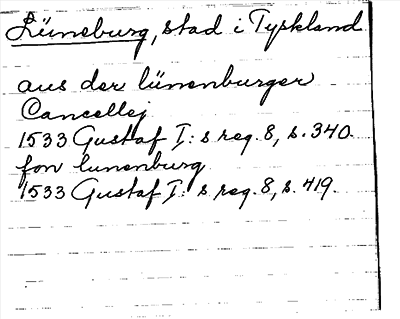 Lüneburg, stad i Tyskland
aus der lünenburger
Cancellej
1533 Gustaf I:s reg. 8, s. 340.
fon lunenburg
1533 Gustaf I:s reg. 8, s. 419.